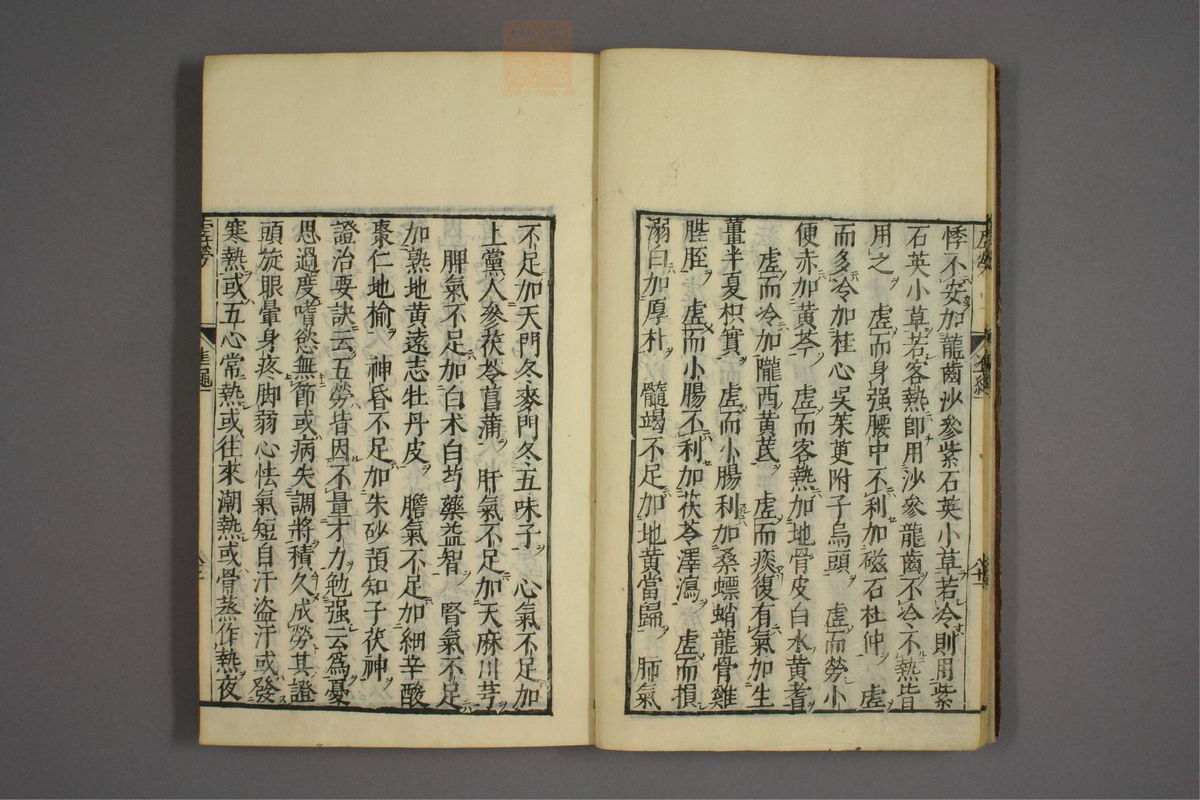 悸不安加龍齒沙參紫石英小草若冷則用紫
石英小草若客熱卽用沙參龍齒不冷不熱皆
用之　虛而身强腰中不利加磁石杜仲　虛
而多冷加桂心吳茱萸附子烏頭　虛而勞小
便赤加黃芩　虛而客熱加地骨皮白水黃耆
虛而冷加隴西黃芪　虛而痰復有氣加生
薑半夏枳實　虛而小腸利加桑螵蛸龍骨雞
膍胵　虛而小腸不利加茯苓澤瀉　虛而損
溺白加厚朴　髓竭不足加地黃當歸　肺氣
不足加天門冬麥門冬五味子　心氣不足加
上黨人參茯苓菖蒲　肝氣不足加天麻川芎
脾氣不足加白朮白芍藥益智　腎氣不足
加熟地黃遠志牡丹皮　膽氣不足加細辛酸
棗仁地榆　神昏不足加朱砂預知子茯神
證治要訣云五勞皆因不量才力勉强云爲憂
思過度嗜慾無節或病失調將積久成勞其證
頭旋眼暈身疼脚弱心怯氣短自汗盜汗或發
寒熱或五心常熱或往來潮熱或骨蒸作熱夜
虛勞
準繩